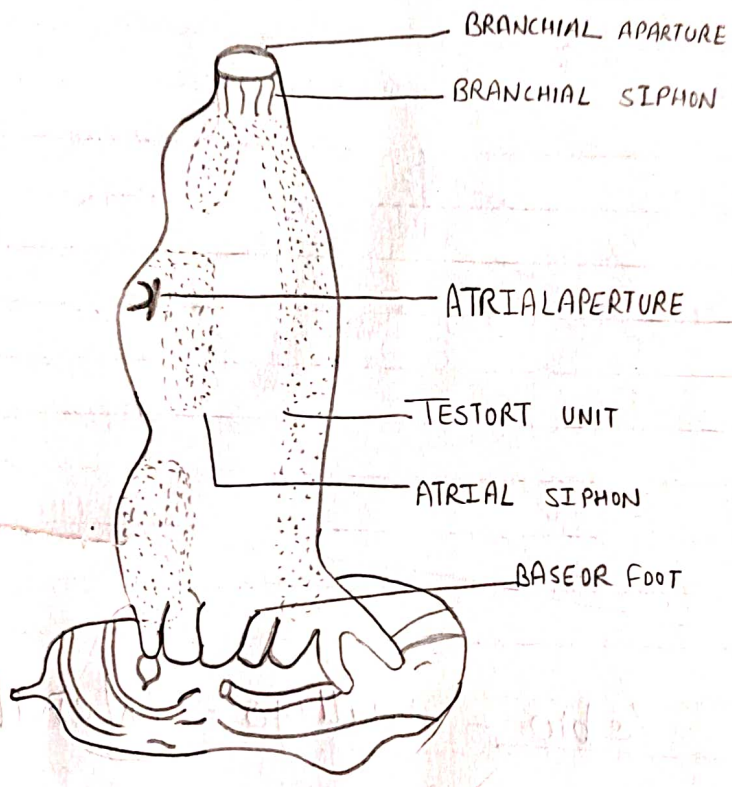 BRANCHIAL APARTURE
BRANCHIAL SIPHON
ATRIALAPERTURE
TESTORT UNIT
ATRIAL SIPHON
BASEOR FOOT